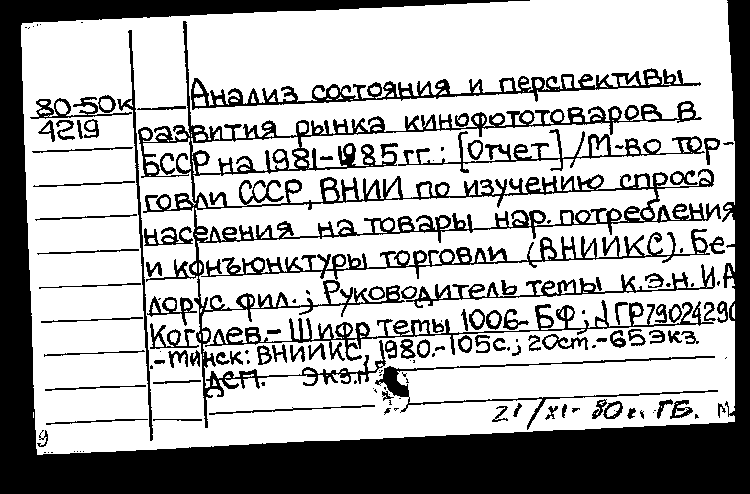 Анализ состояния и перспективы
80-50к
4219
развития рынка кинофототоваров в
БССР на 1981-1985 гг. : [Отчет] / М-во тор-
говли СССР, ВНИИ по изучению спроса
населения на товары нар. потребления
и конъюнктуры торговли (ВНИИКС). Бе-
лорус. фил. ; Руководитель темы к.э.н. И.А
Коголев. - Шифр темы 1006-БФ ; ГР7902429
.-Минск: ВНИИКС, 1980.-105с.; 20см.-65экз.
ДСП. Экз.
21/XI-80г. ГБ.
9